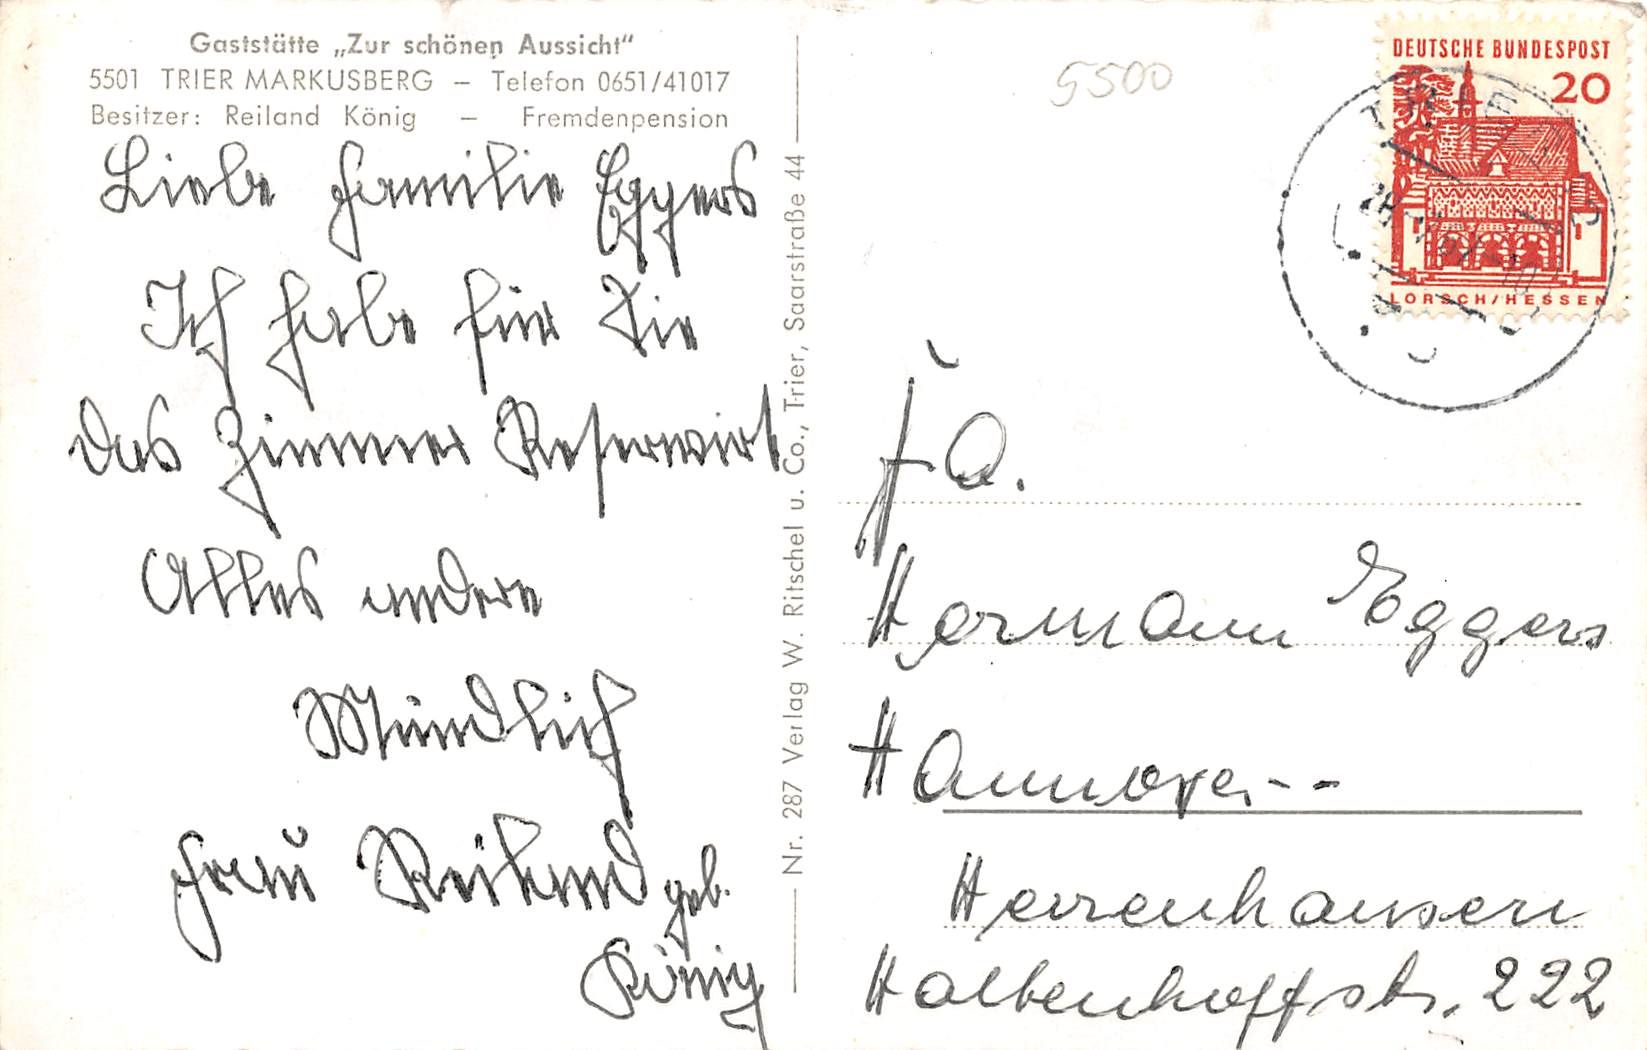 Gaststätte „Zur schönen Aussicht"
5501 TRIER MARKUSBERG – Telefon 0651/41017
Besitzer: Reiland König – Fremdenpension
Liebe Familie Eggers
Ich habe für Sie
das Zimmer Reserwirt
Alles andere
Mündlich
Frau Reiland geb.
König
Nr. 287 Verlag W. Ritschel u. Co., Trier, Saarstraße 44
5500
DEUTSCHE BUNDESPOST
20
LORSCH/HESSEN
Fa.
Hermann Eggers
Hannover--
Herrenhausen
Haltenhoffstr. 222